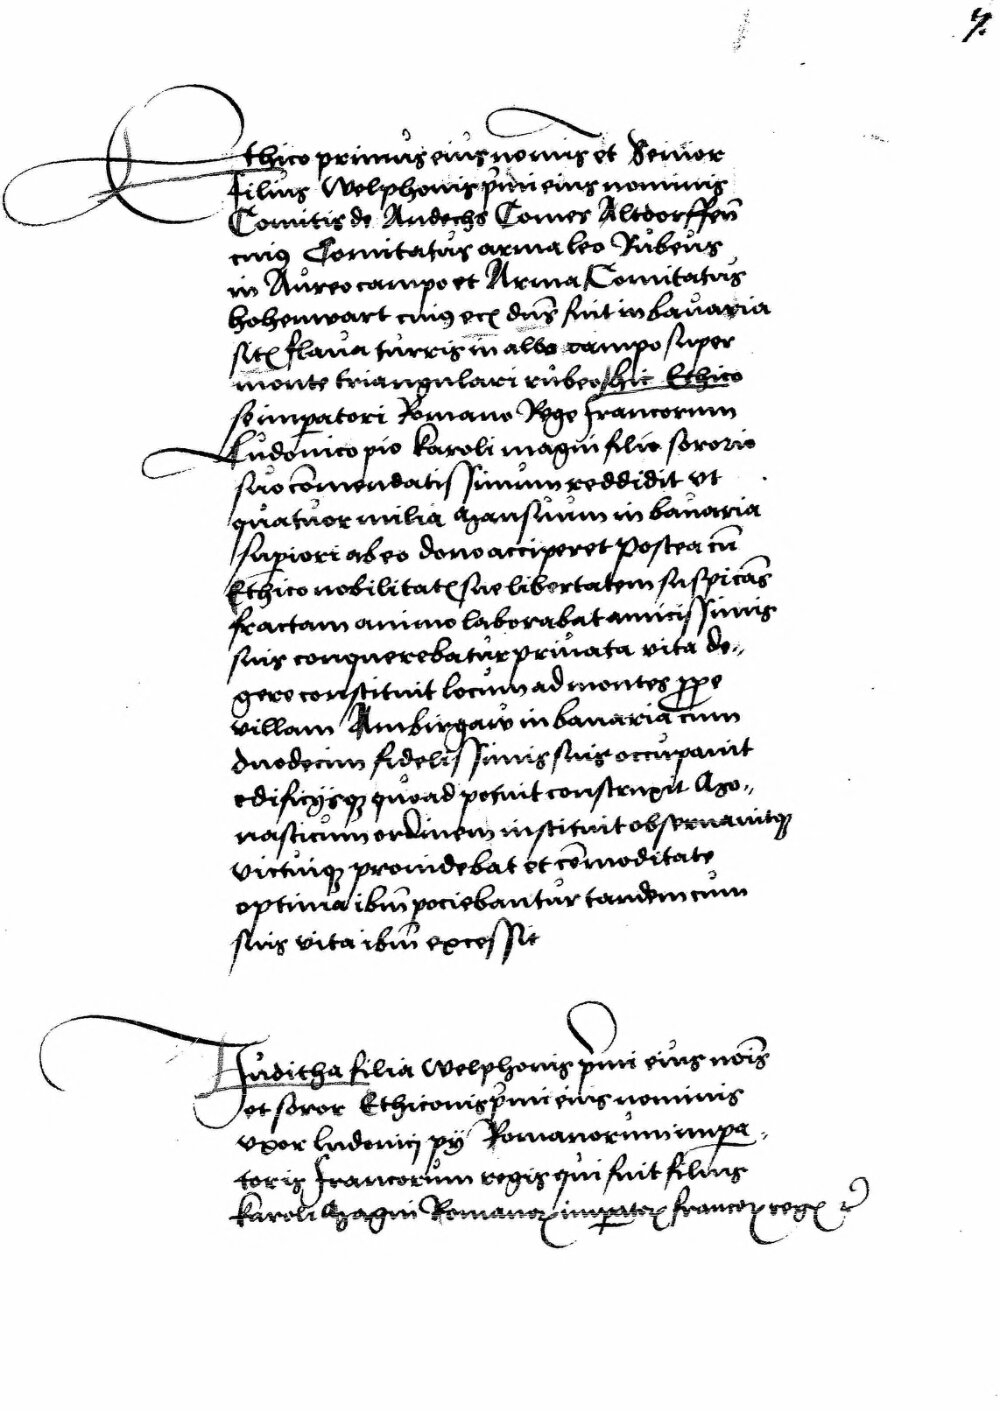 7.
Ethico primus eius nominis et Senior
filius Welphonis p̄mi eius nominis
Comitis de Andechs Comes Altdorffen̄
cuiꝯ Comitatus arma leo Rubeus
in Aureo campo et Arma Comitatus
hohenwart cuiꝯ dn̄s fuit in bavaria
flava turris in albo campo super
monte triangulari rubeo hic Ethico
se imꝑatori Romano Rege francorum
Ludovico pio Karoli magni filio sororio
suo cōmendatissimum reddidit ut
quatuor milia Mansuum in bavaria
suꝑiori ab eo dono acciperet Postea cū
Ethico nobilitatꝭ sue libertatem suspicās
fractam animo laborabat amicissimis
suis conquerebatur privata vita de-
gere constituit locum ad montes ꝓpe
villam Ambirgaw in bavaria cum
duodecim fidelissimis suis occupavit
edificijsqꝫ quoad potuit construxit Mo-
nasticum ordinem instituit observavitqꝫ
victuiqꝫ providebat et cōmoditate
optima ibm̄ pociebantur tandem cum
suis vita ibm̄ excessit
Juditha filia Welphonis p̄mi eius nōis
et soror Ethiconis p̄mi eius nominis
uxor ludovici pij Romanorum impa-
toris francorum regis qui fuit filius
Karoli Magni Romanoꝝ imꝑatorꝭ francoꝝ regꝭ